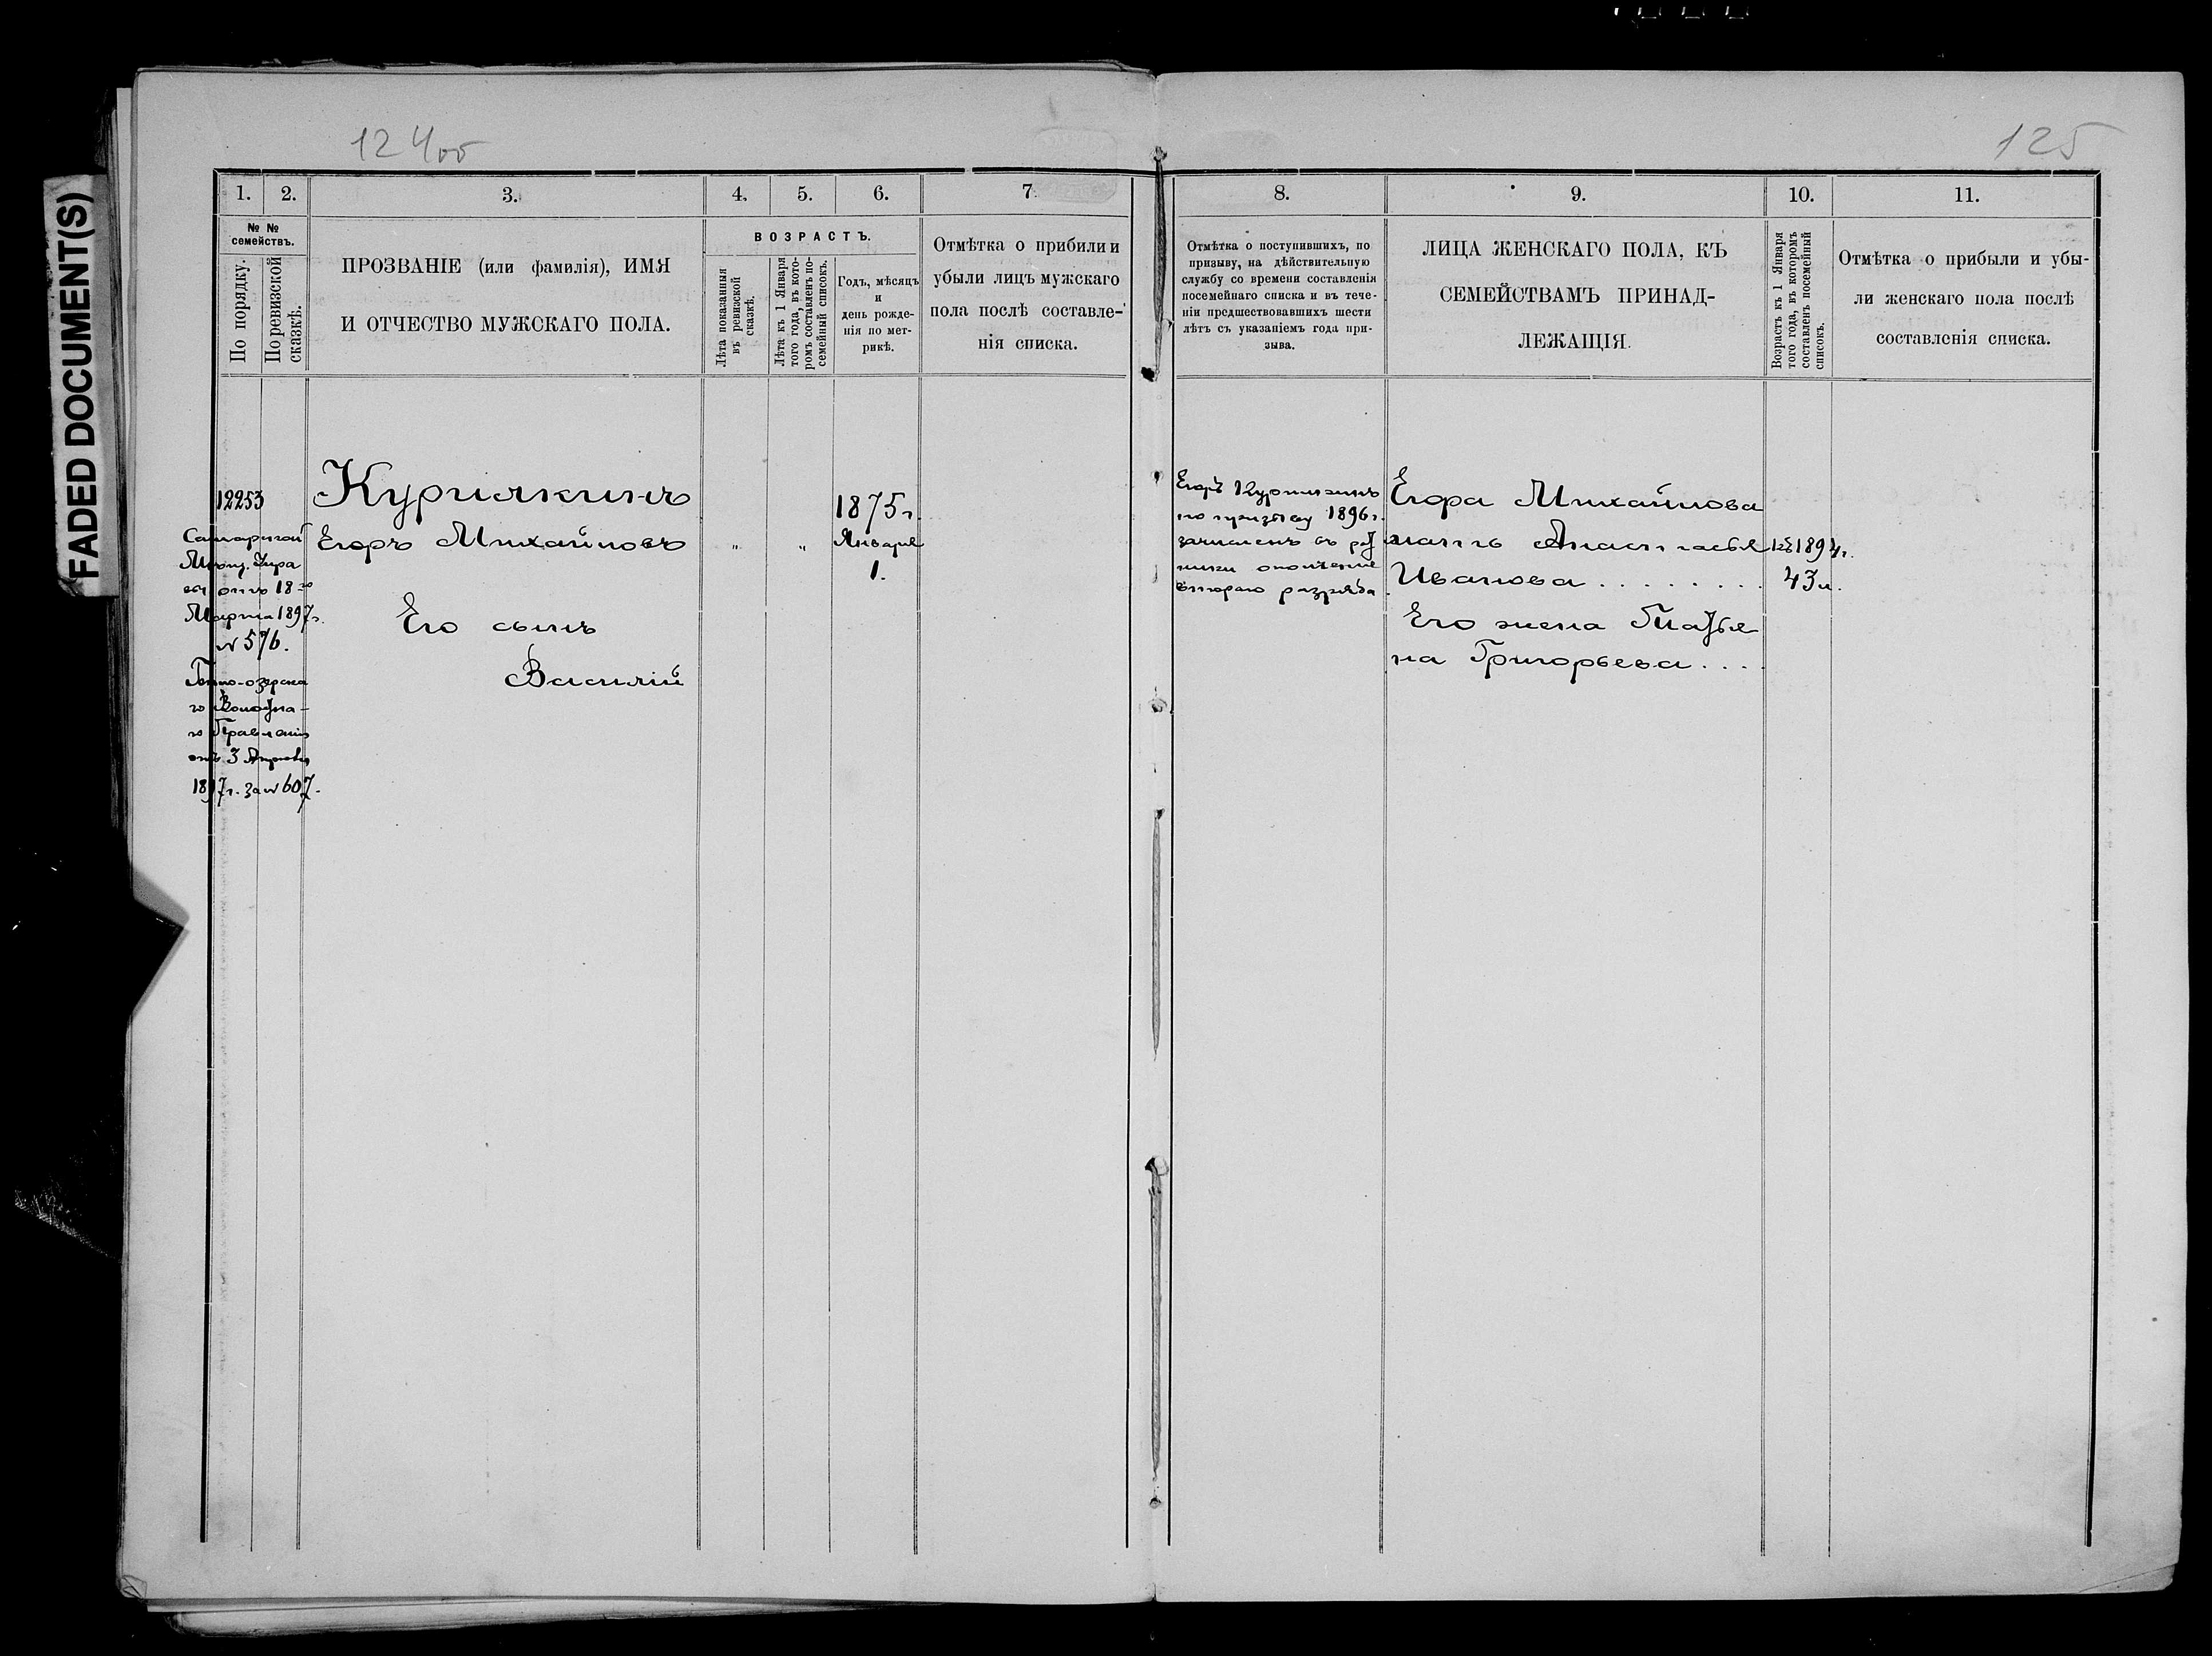 FADED DOCUMENT(S)
124об
125
1.
2.
3.
4.
5.
6.
7.
8.
9.
10.
11.
№ №
семействъ.
По порядку.
По ревизской
сказкѣ.
ПРОЗВАНІЕ (или фамилія), ИМЯ
И ОТЧЕСТВО МУЖСКАГО ПОЛА.
ВОЗРАСТЪ.
Лѣта показанныя
въ ревизской
сказкѣ.
Лѣта къ 1 Января
того года, въ кото-
ромъ составленъ по-
семейный списокъ.
Годъ, мѣсяцъ
и
день рожде-
нія по мет-
рикѣ.
Отмѣтка о прибили и
убыли лицъ мужскаго
пола послѣ составле-
нія списка.
Отмѣтка о поступившихъ, по
призыву, на дѣйствительную
службу со времени составленія
посемейнаго списка и въ тече-
ніи предшествовавшихъ шести
лѣтъ съ указаніемъ года при-
зыва.
ЛИЦА ЖЕНСКАГО ПОЛА, КЪ
СЕМЕЙСТВАМЪ ПРИНАД-
ЛЕЖАЩІЯ.
Возрастъ къ 1 Января
того года, въ которомъ
составленъ посемейный
списокъ.
Отмѣтка о прибыли и убы-
ли женскаго пола послѣ
составленія списка.
12253
Самарской
Мѣщ. Упра
вы отъ 18го
Марта 1897г.
№ 576.
го Волостна-
го Правленія
отъ 3
1897г. за № 607.
Курилкинъ
Егоръ Михайловъ
" "
1875г.
Января
1.
Его сынъ
Василій
Егоръ Курилкинъ
по призыву 1896г.
зачисленъ въ рат
ники ополченія
второго разряда.
Егора Михайлова
мать Анастасья
Иванова . . . . . . . .
къ 1894г.
43л.
Его жена Татья
на Григорьева . . . .